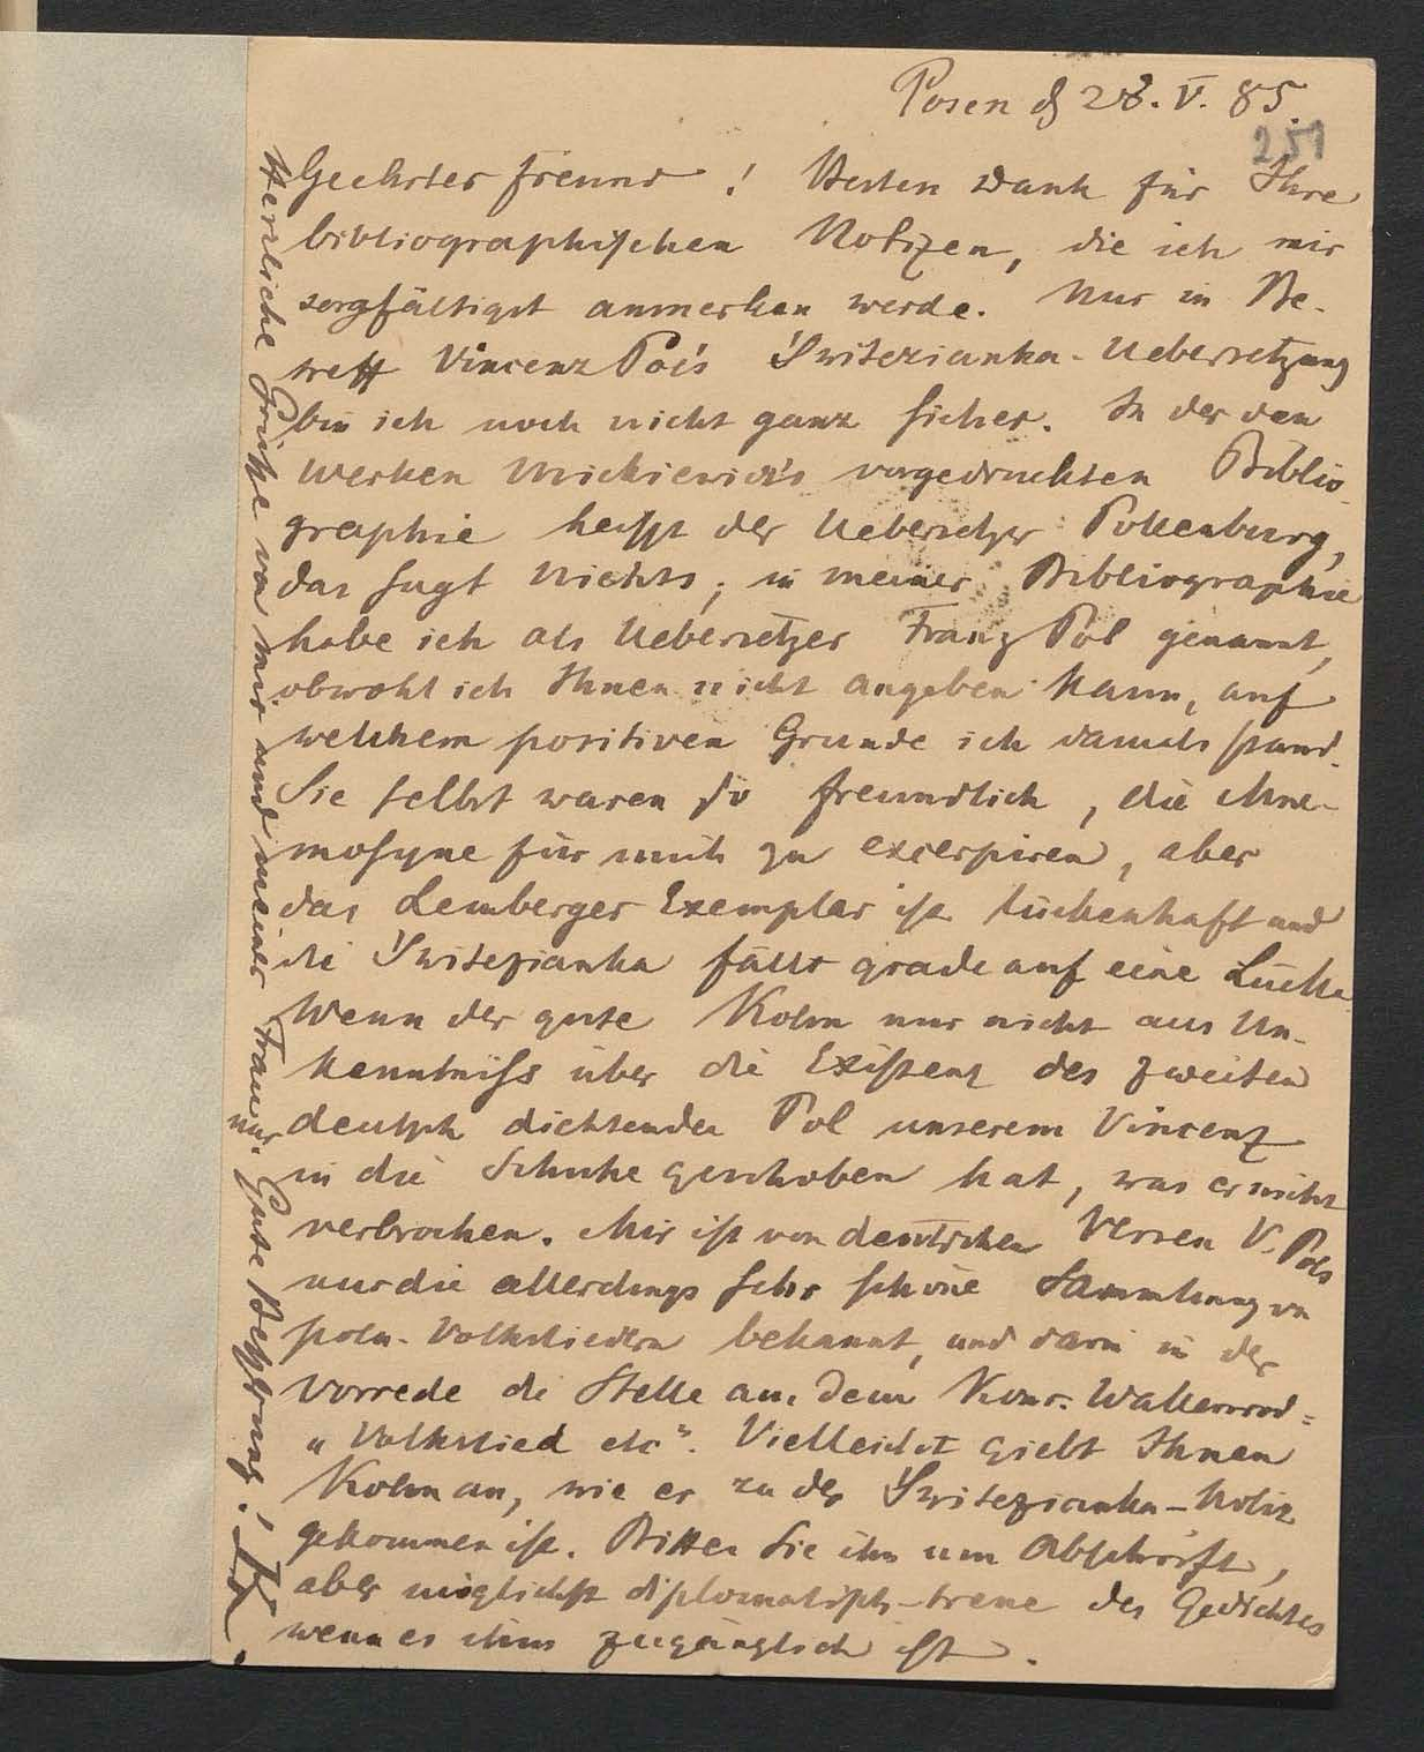 Posen d 28. V. 85.
251
Geehrter Freund! Besten Dank für Ihre
bibliographischen Notizen, die ich mir
sorgfältigst anmerken werde. Nur in Be-
treff Vincenz Pol's Switezianka-Uebersetzung
bin ich noch nicht ganz sicher. In der den
Werken Mickiewicz's vorgedruckten Biblio-
graphie heisst der Uebersetzer Pollenburg,
das sagt Nichts; in meiner Bibliographie
habe ich als Uebersetzer Franz Pol genannt,
obwohl ich Ihnen nicht angeben kann, auf
welchem positiven Grunde ich damals stand.
Sie selbst waren so freundlich, die Mne-
mosyne für mich zu excerpiren, aber
das Lemberger Exemplar ist lückenhaft und
die Switezianka fällt grade auf eine Lücke
Wenn der gute Kolm nur nicht aus Un-
kenntniss über die Existenz des zweiten
deutsch dichtenden Pol unserem Vincenz
in die Schuhe geschoben hat, was er nicht
verbrochen. Mir ist von deutschen Versen V. Pols
nur die allerdings sehr schöne Sammlung von
poln. Volksliedern bekannt, und darin in der
Vorrede die Stelle aus dem Konr. Wallenrod =
„Volkslied etc". Vielleicht giebt Ihnen
Kolm an, wie er zu der Switezianka-Notiz
gekommen ist. Bitten Sie ihn um Abschrift,
aber möglichst diplomatisch-treue des Gedichtes
wenn es ihm zugänglich ist.
Herzliche Grüße von mir und meiner Frau.
nur
Gute Besserung! K.